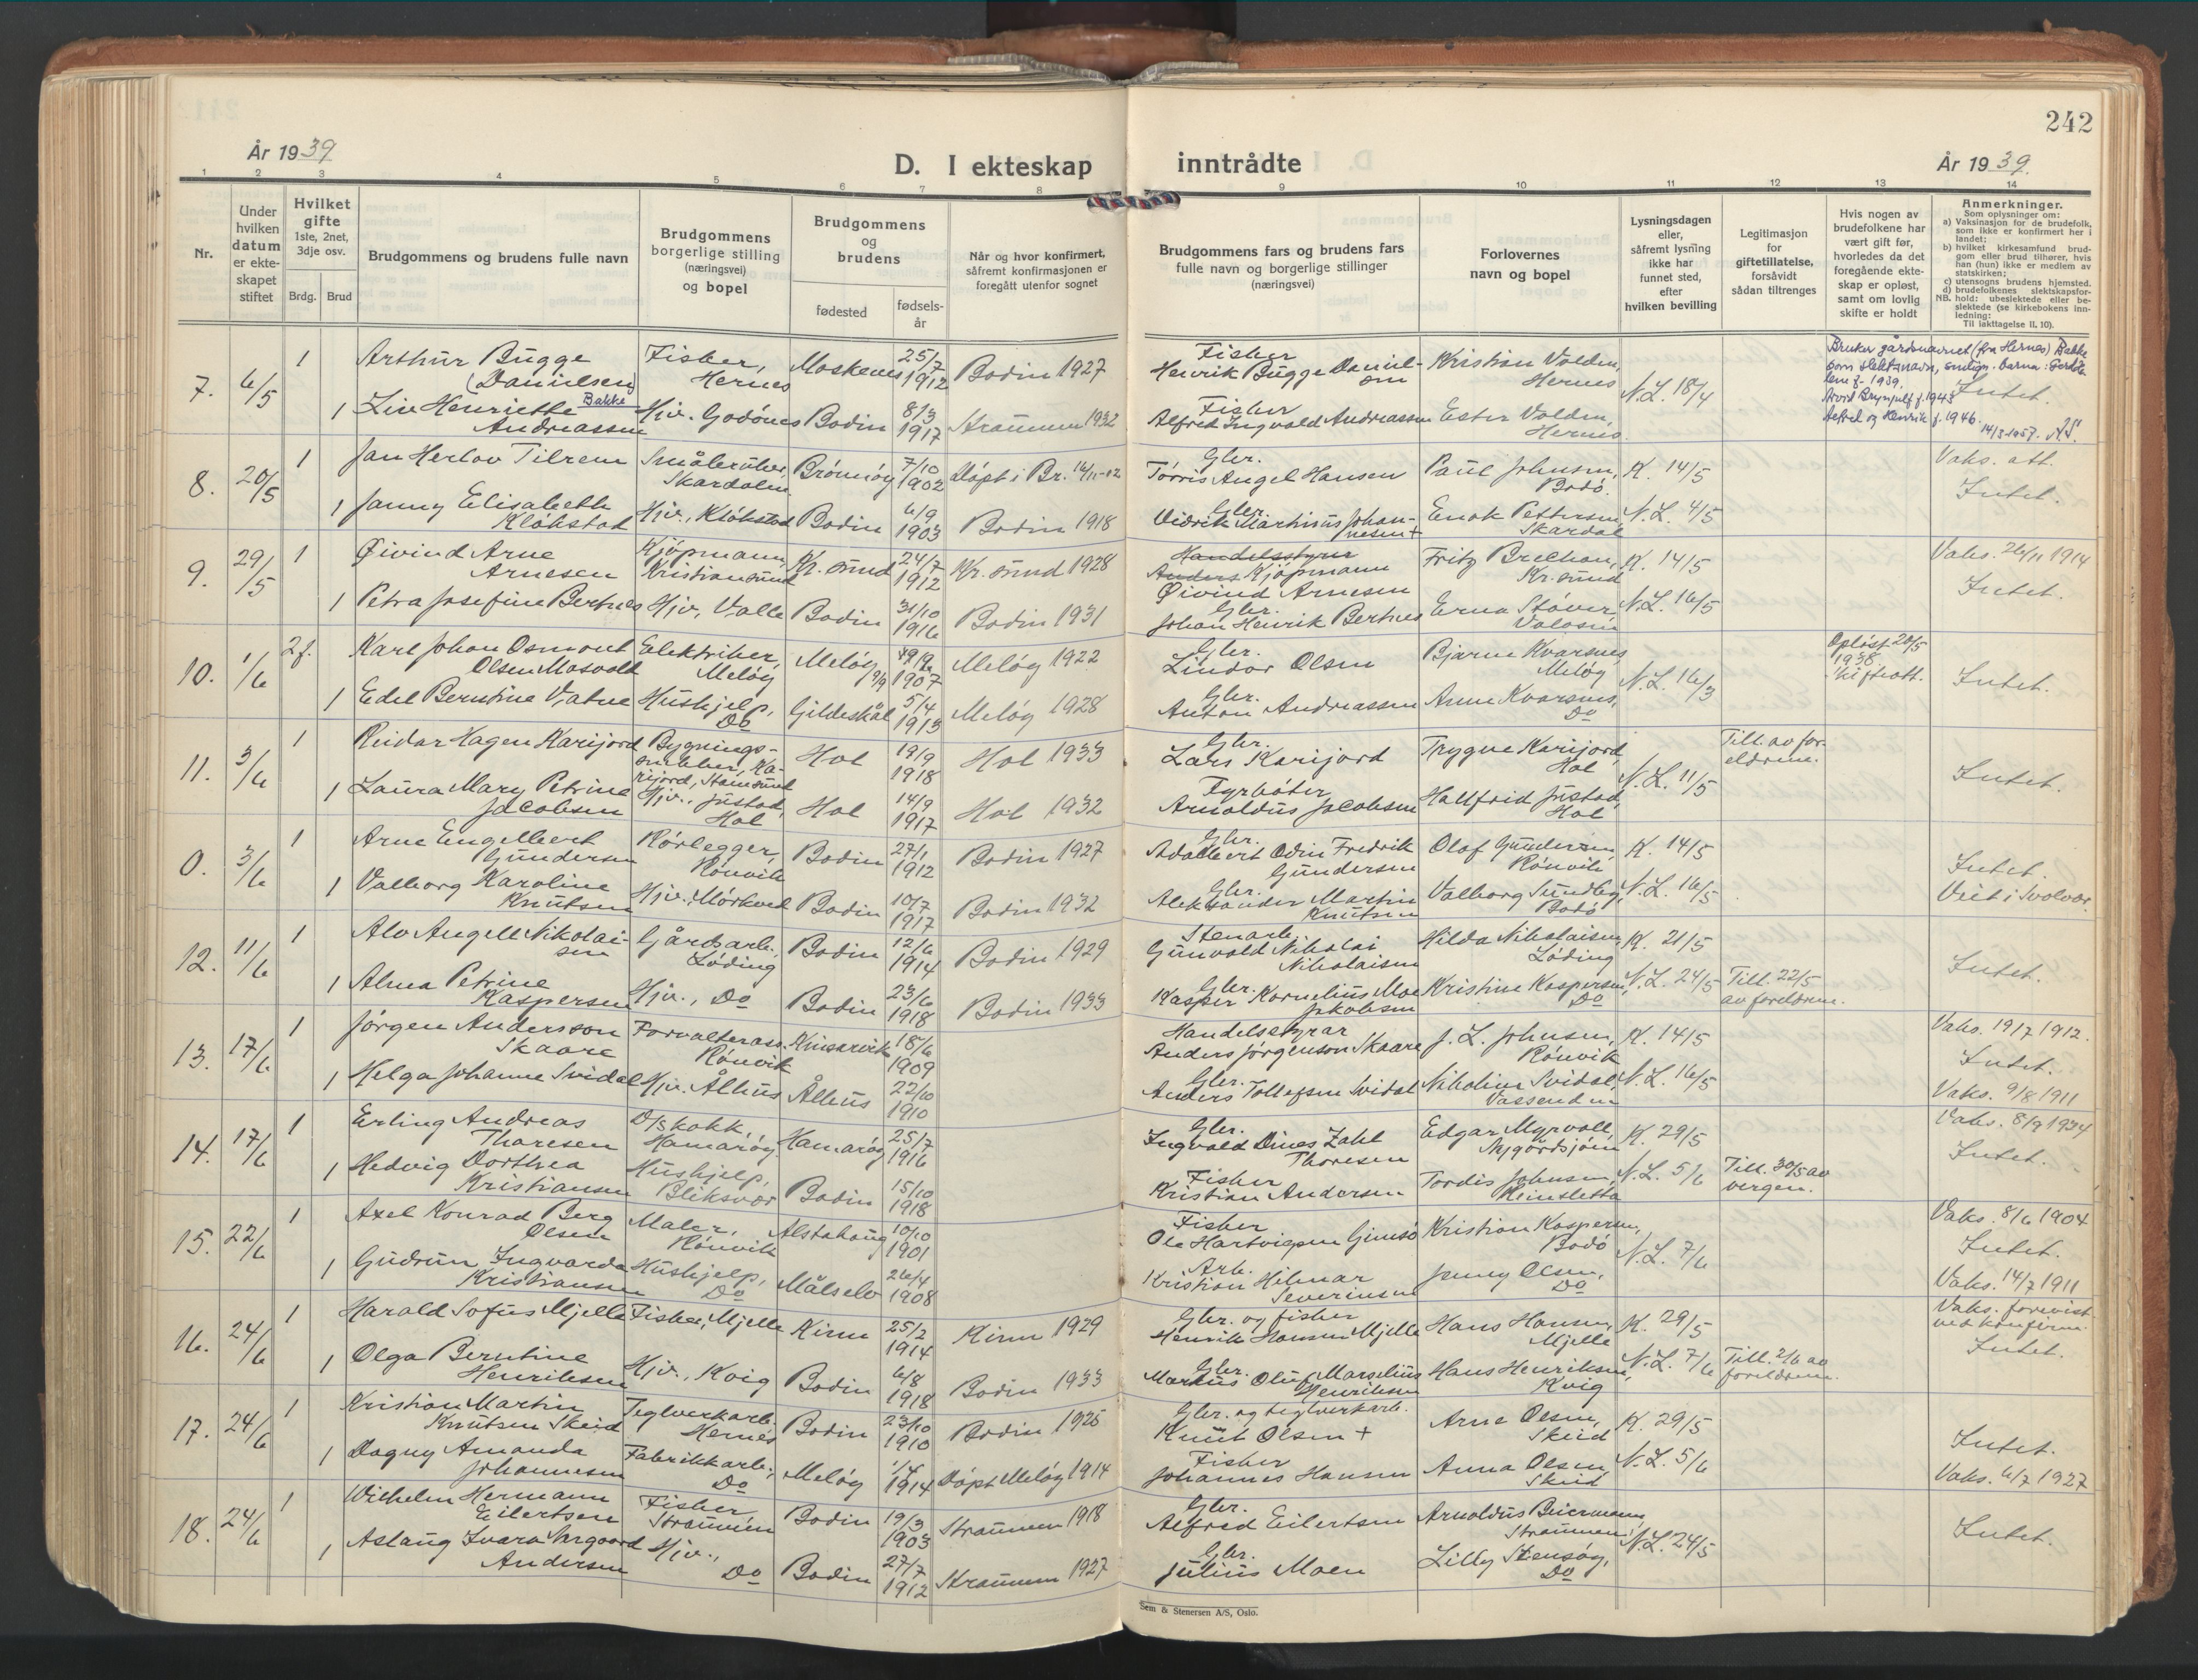 242
År 1939
D. I ekteskap inntrådte
År 1939.
1 2 3 4 5 6 7 8 9 10 11 12 13 14
Nr.
Under hvilken datum er ekteskapet stiftet
Hvilket gifte
1ste, 2net, 3dje osv.
Brdg. Brud
Brudgommens og brudens fulle navn
Brudgommens borgerlige stilling (næringsvei) og bopel
Brudgommens og brudens
fødested
fødselsår
Når og hvor konfirmert, såfremt konfirmasjonen er foregått utenfor sognet
Brudgommens fars og brudens fars fulle navn og borgerlige stillinger (næringsvei)
Forlovernes navn og bopel
Lysningsdagen eller, såfremt lysning ikke har funnet sted, efter hvilken bevilling
Legitimasjon for giftetillatelse, forsåvidt sådan tiltrenges
Hvis nogen av brudefolkene har vært gift før, hvorledes da det foregående ekteskap er opløst, samt om lovlig skifte er holdt
Anmerkninger.
Som oplysninger om:
a) Vaksinasjon for de brudefolk, som ikke er konfirmert her i landet;
b) hvilket kirkesamfund brudgom eller brud tilhører, hvis han (hun) ikke er medlem av statskirken;
c) utensogns brudens hjemsted.
d) brudefolkenes slektskapsforhold: ubeslektede eller beslektede (se kirkebokens innledning:
NB.
Til iakttagelse II, 10).
7. 6/5 1 Arthur Bugge (Danielsen) Bakke Fisker, Hernes Moskenes 25/7 1912 Bodin 1927 Fisker Henrik Bugge Danielsen Kristian Valden, Hernes N.L. 18/4
Bruker gårdsnavnet (fra Hernes) Bakke som slektsnavn, f. 1939, Arvid Brynjulf f. 1943 Alfred og Henrik f. 1946. 14/3 1957. Intet.
1 Liv Henriette Andreassen Hjv. Godönes Bodin 8/3 1917 Straumen 1932 Fisker Alfred Ingvald Andreassen Ester Valden, Hernes
8. 20/5 1 Jan Herlov Tilrem Småbruker, Skardalen Brönnöy 7/10 1902 Döpt i Br. 16/11-02 Gbr. Törris Angel Hansen Paul Johnsen, Bodö. K. 14/5 Vaks. att.
1 Janny Elisabeth Klökstad Hjv., Klökstad Bodin 6/9 1903 Bodin 1918 Gbr. Vidrik Martinus Johannesen + Enok Pettersen, Skardal N.L. 4/5 Intet.
9. 29/5 1 Öivind Arne Arnesen Kjöpmann, Kristiansund Kr. sund 24/7 1912 Kr. sund 1928 Handelsstyrer Anders Kjöpmann Öivind Arnesen Fritz Brelhan, Kr. sund K. 14/5 Vaks. 26/11 1914
1 Petra Josefine Bertnes Hjv, Valle Bodin 31/10 1916 Bodin 1931 Gbr. Johan Henrik Bertnes Erna Stöver, Valosen N.L. 16/5 Intet.
10. 1/6 2 f. Karl Johan Osmont Olsen Mosvold Elektriker, Melöy Melöy 9/9 1907 Melöy 1922 Gbr. Lindor Olsen Bjarne Kvarsnes, Melöy N.L. 16/3 Oplöst 20/5 1938. Skifteatt. Intet.
1 Edel Berntine Vatne Hushjelp, Do Gildeskål 5/4 1913 Melöy 1928 Gbr. Anton Andreassen Anne Kvarsnes, Do
11. 3/6 1 Reidar Hagen Karijord Bygningssnekker, Karijord, Stamsund Hol 19/9 1918 Hol 1933 Gbr. Lars Karijord Trygve Karijord, Hol N.L. 11/5 Till. av foreldrene. Intet.
1 Laura Mary Petrine Jacobsen Hjv., Justad, Hol Hol 14/9 1917 Hol 1932 Fyrböter Arnoldus Jacobsen Hallfrid Justad, Hol
0. 3/6 1 Arne Engelbert Gundersen Rörlegger, Rönvik Bodin 27/1 1912 Bodin 1927 Gbr. Adalbert Odin Fredrik Gundersen Olaf Gundersen, Rönvik K. 14/5 Intet.
1 Valborg Karoline Knutsen Hjv., Mörkved Bodin 10/7 1917 Bodin 1932 Gbr. Aleksander Martin Knutsen Valborg Sundby, Bodö N.L. 16/5 Viet i Svolvær.
12. 11/6 1 Alv Angell Nikolaisen Gårdsarb., Löding Bodin 12/6 1914 Bodin 1929 Stenarb. Gunvald Nikolai Nikolaisen Hilda Nikolaisen, Löding K. 21/5 Intet.
1 Alma Petrine Kaspersen Hjv., Do Bodin 23/6 1918 Bodin 1933 Gbr. Kasper Kornelius Moe Jakobsen Kristine Kaspersen, Do N.L. 24/5 Till. 22/5 av foreldrene.
13. 17/6 1 Jörgen Andersson Skaare Forvalterass. Rönvik Kinsarvik 18/6 1909 Handelsstyrar Anders Jörgenson Skaare J. L. Johnsen, Rönvik K. 14/5 Vaks. 19/7 1912.
1 Helga Johanne Svidal Hjv. Ålhus Ålhus 22/10 1910 Gbr. Anders Tollefsen Svidal Nikoline Svidal, Vassenden N.L. 16/5 Intet. Vaks. 9/8 1911
14. 17/6 1 Erling Andreas Thoresen D/skokk, Hamaröy Hamaröy 25/7 1916 Gbr. Ingvald Dines Zahl Thoresen Edgar Myrvoll, Nygårdsjöen K. 29/5 Vaks. 8/9 1934
1 Hedvig Dorthea Kristiansen Hushjelp, Bliksvær Bodin 15/10 1918 Fisker Kristian Andersen Tordis Johnsen, Reinsletta N.L. 5/6 Till. 30/5 av vergen. Intet.
15. 22/6 1 Axel Konrad Berg Olsen Maler, Rönvik Alstahaug 10/10 1901 Fisker Ole Hartvigsen Gimsö Kristian Kaspersen, Bodö N.L. 7/6 Vaks. 8/6 1904
1 Gudrun Ingvarda Kristiansen Hushjelp, Do Målselv 26/4 1908 Arb. Kristian Hilmar Severinsen Jenny Olsen, Do Intet. Vaks. 14/7 1911
16. 24/6 1 Harald Sofus Mjelle Fisker, Mjelle Kinn 25/2 1914 Kinn 1929 Gbr. og fisker Henrik Hansen Mjelle Hans Hansen, Mjelle K. 29/5 Vaks. forevist ved konfirm.
1 Olga Berntine Henriksen Hjv., Kvig Bodin 6/8 1918 Bodin 1933 Gbr. Markus Oluf Marselius Henriksen Hans Henriksen, Kvig N.L. 7/6 Till. 2/6 av foreldrene. Intet.
17. 24/6 1 Kristian Martin Knutsen Skeid Teglverkarb. Hernes Bodin 23/10 1910 Bodin 1925 Gbr. og teglverkarb. Knut Olsen + Arne Olsen, Skeid K. 29/5 Intet.
1 Dagny Amanda Johannesen Fabrikkarb., Do Melöy 1/4 1914 Döpt Melöy 1914 Fisker Johannes Hansen Anna Olsen, Skeid N.L. 5/6 Vaks. 6/7 1927
18. 24/6 1 Wilhelm Hermann Eilertsen Fisker Straumen Bodin 19/3 1903 Straumen 1918 Gbr. Alfred Eilertsen Arnoldus Beiermann, Straumen N.L. 24/5 Intet.
1 Aslaug Ivara Andersen Hjv., Do Bodin 27/7 1912 Straumen 1927 Gbr. Julius Moen Lilly Stensöy, Do
Sem & Stenersen A/S, Oslo.